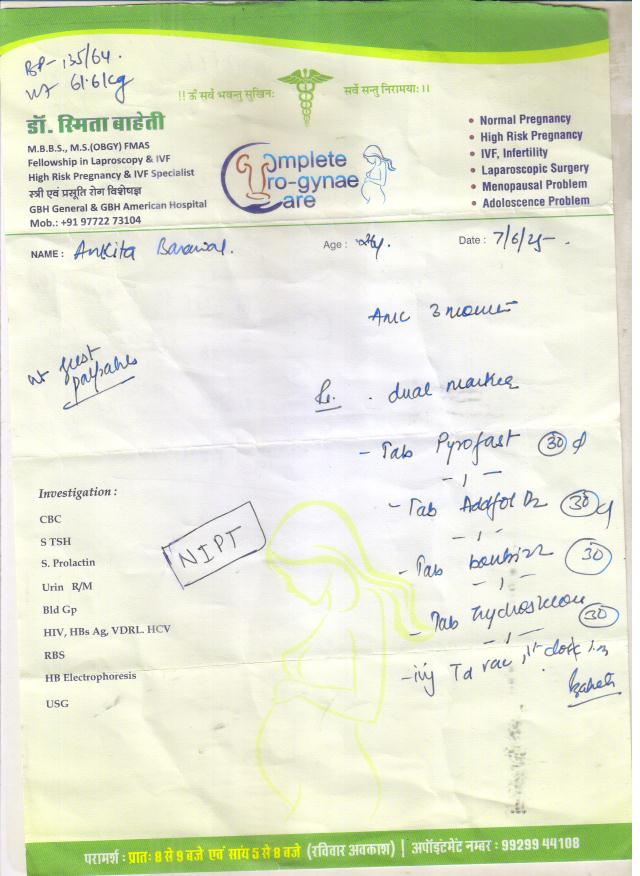 BP- 135/64.
WT 61.6kg
!! ॐ सर्वे भवन्तु सुखिनः सर्वे सन्तु निरामयाः।।
डॉ. स्मिता बाहेती
M.B.B.S., M.S.(OBGY) FMAS
Fellowship in Laproscopy & IVF
High Risk Pregnancy & IVF Specialist
स्त्री एवं प्रसूति रोग विशेषज्ञ
GBH General & GBH American Hospital
Mob.: +91 97722 73104
Complete
Uro-gynae
Care
• Normal Pregnancy
• High Risk Pregnancy
• IVF, Infertility
• Laparoscopic Surgery
• Menopausal Problem
• Adoloscence Problem
NAME : Ankita Age : Date : 7/6/25
ANC 3
dual marker
- Tab Pyrofast 30
- Tab 30
- Tab 30
- Tab 30
- inj Td vac, 1st dose i.m
Investigation :
CBC
S TSH
S. Prolactin
Urin R/M
Bld Gp
HIV, HBs Ag, VDRL. HCV
RBS
HB Electrophoresis
USG
NIPT
परामर्श : प्रातः 8 से 9 बजे एवं सांय 5 से 8 बजे (रविवार अवकाश) | अपॉइंटमेंट नम्बर : 99299 44108